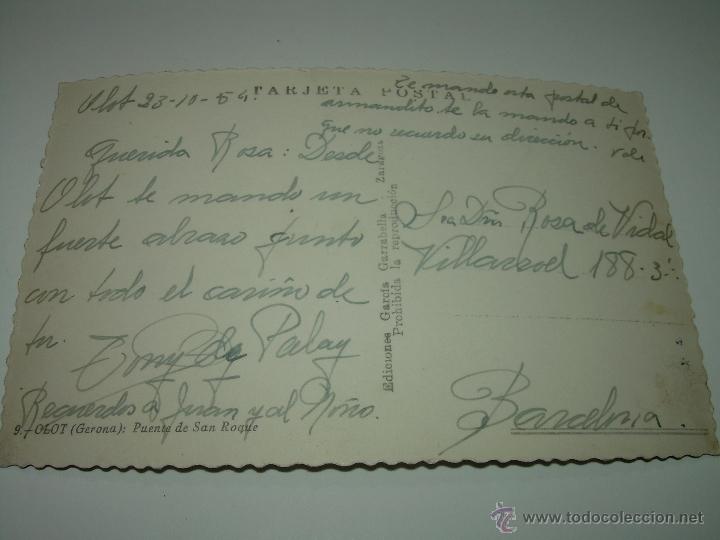 TARJETA POSTAL
Olot 23-10-54.
Querida Rosa: Desde
Olot te mando un
fuerte abrazo junto
con todo el cariño de
tu.
Tony de Palay
Recuerdos a Juan y al Niño.
9.-OLOT (Gerona): Puente de San Roque
Te mando esta postal de
armandito te la mando a ti por
que no recuerdo su dirección. vale
Ediciones García Garrabella Zaragoza
Prohibida la reproducción
Sra Dña Rosa de Vidal
Villarroel 188-3º
Barcelona.
www.todocoleccion.net